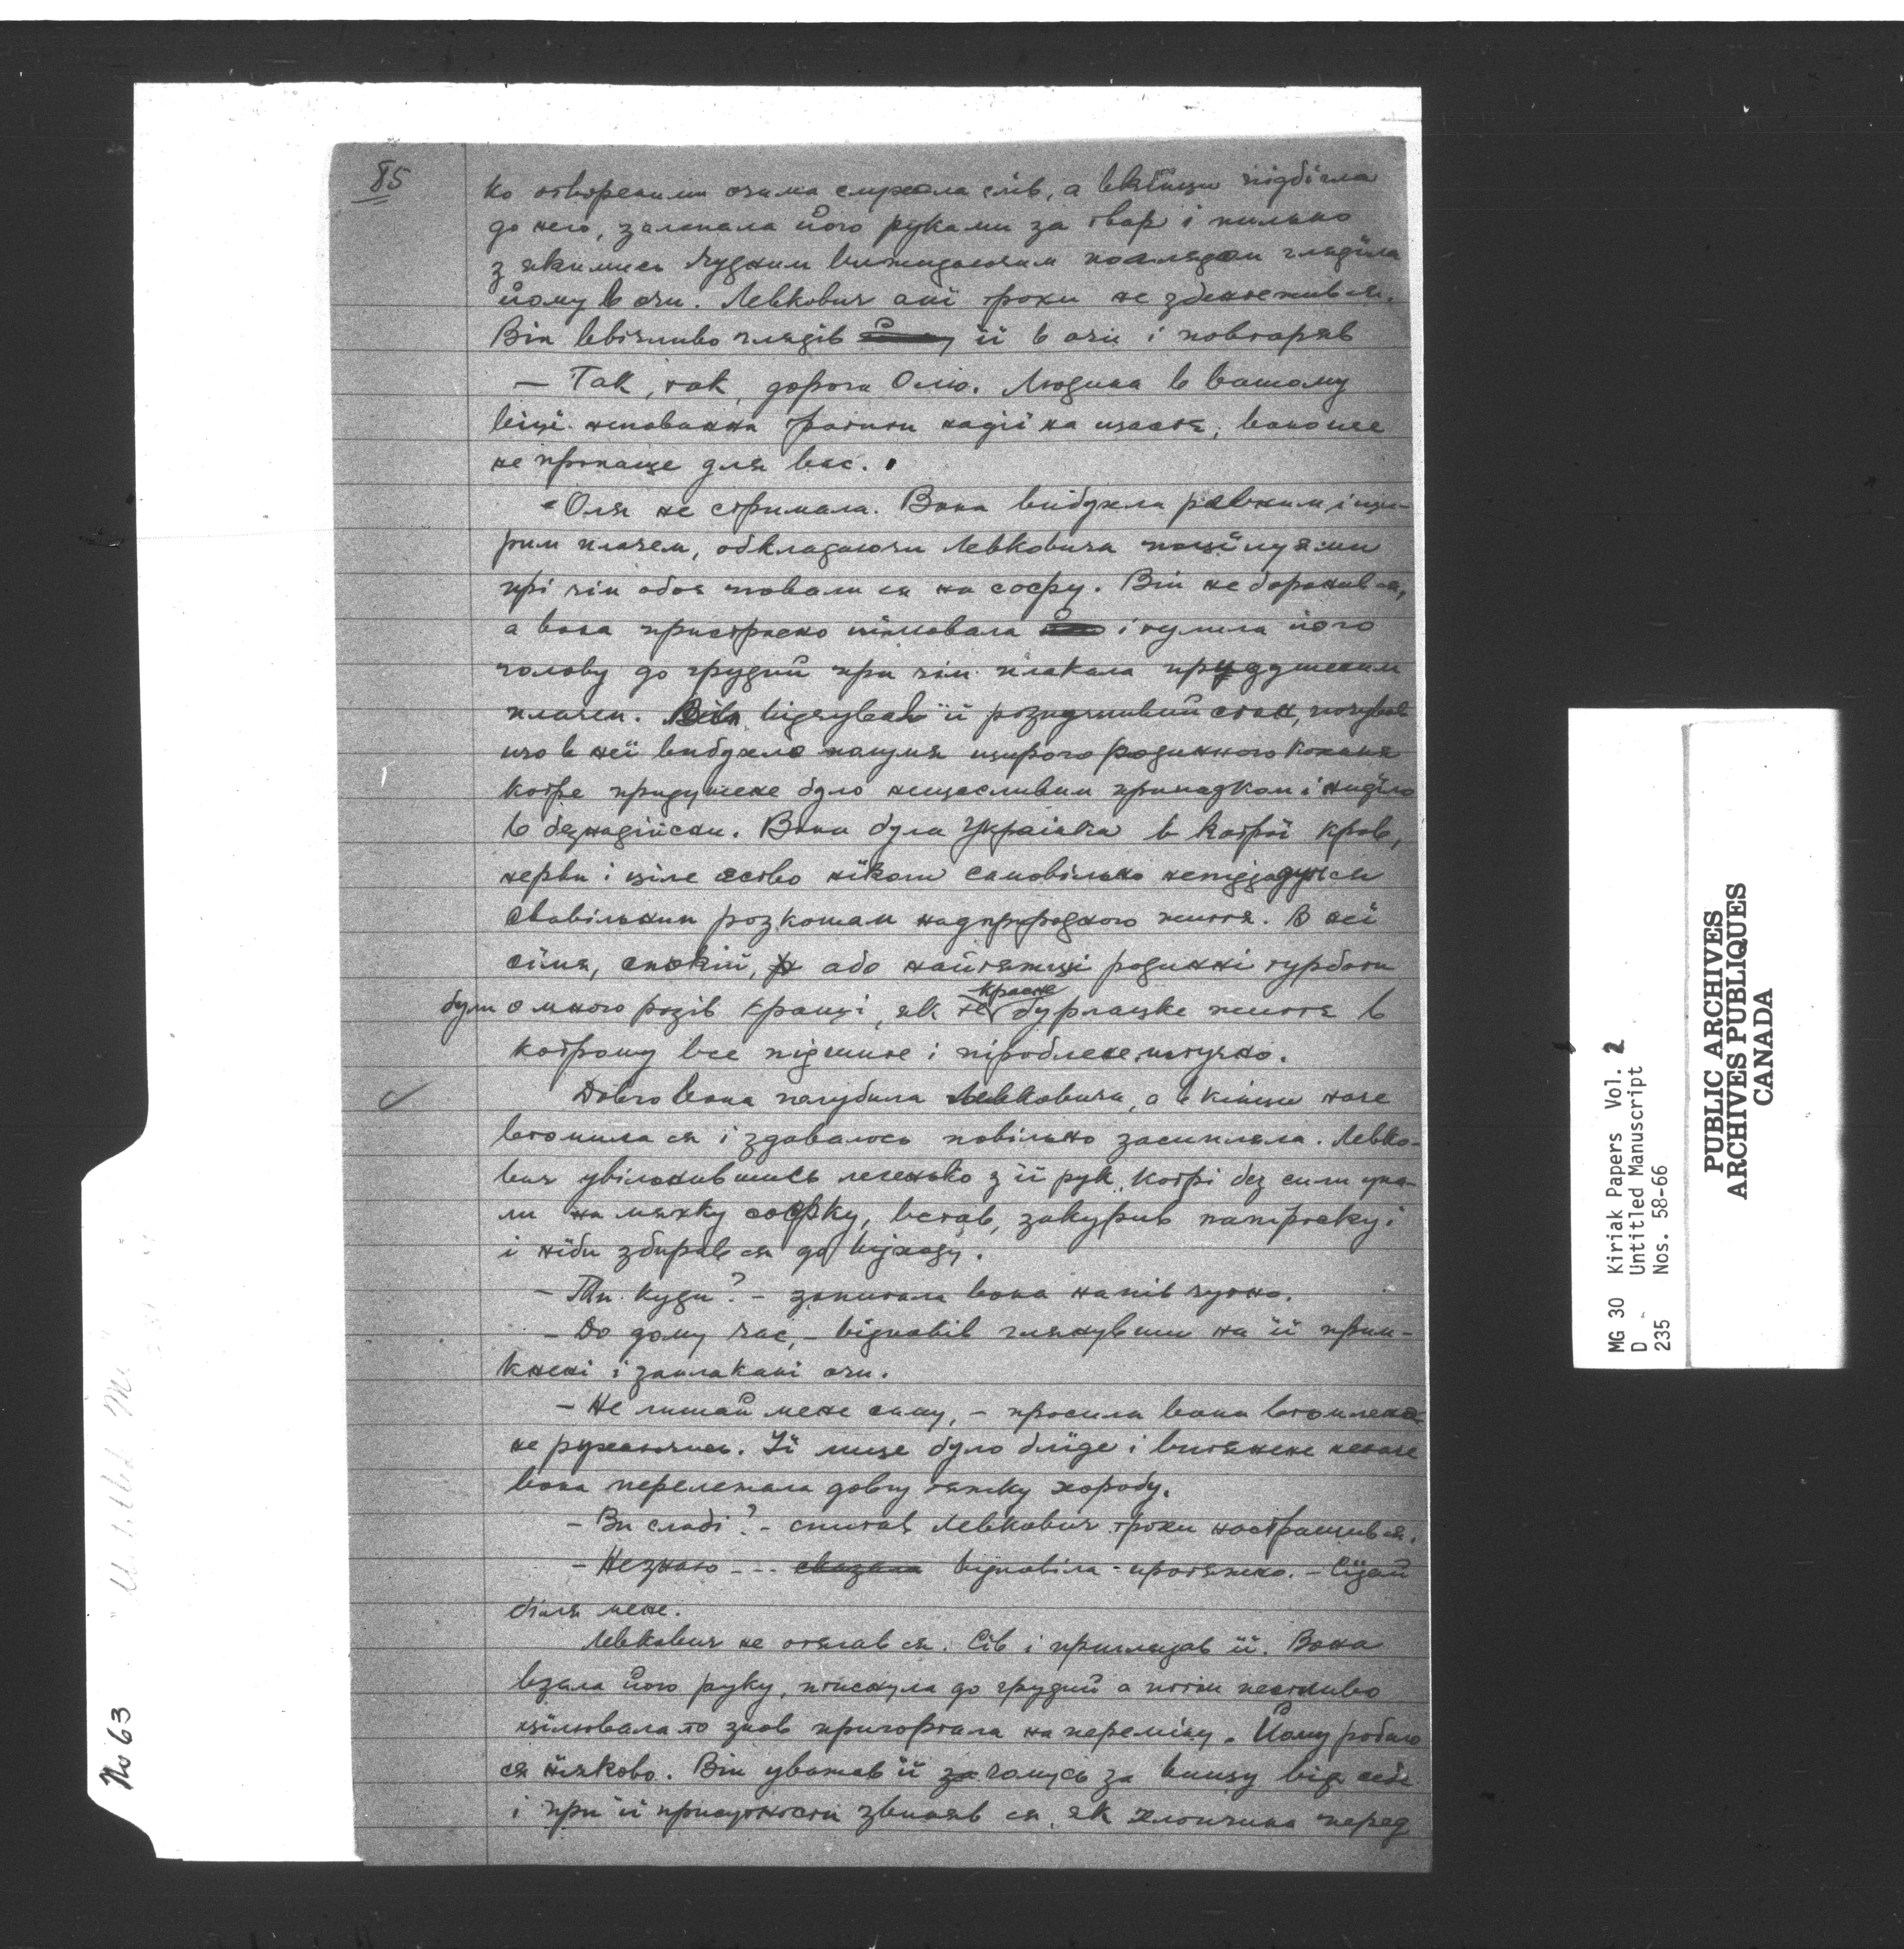 85
ко отвореними очима слухала слів, а вкінци підбігла
до него, залапала його руками за твар і пильно
з якимись чудним вижидаючим поглядом гляділа
йому в очи. Левкович ані трохи не збентежив ся.
Він ввічливо глядів її в очи і повторяв
— Так, так, дорога Олю. Людина в вашому
віці неповинна тратити надії на щастя, воно ще
не пропаще для вас.
Оля не стримала. Вона вибухла ревним, і щи-
рим плачем, обкладаючи Левковича поцілуями
при чім обоя повали ся на софу. Він не боронив ся,
а вона пристрасно цілювала і тулила його
голову до грудий при чім плакала придушеним
плачем. Він відчував її розпучливий стан, почував
що в неї вибухло почутя щирого родинного коханя
котре придушене було нещасливим припадком і нидїло
в безнадійєхи. Вона була Українка в котрої кров,
нерви і ціле єство нїколи самовільно непіддадуться
свавільним розкошам надприродного життя. В неї
сїмя, спокій, або найтяжщі родинні турботи
були о много разів кращі, як те красне бурлацьке життя в
котрому все підшите і піроблене штучно.
Довго вона голубила Левковича, а в кінци наче
втомила ся і здавалось повільно засипляла. Левко-
вич увільнившись легенько з її рук, котрі без сили упа-
ли на мягку софку, встав, закурив папіроску і
і ніби збирав ся до відходу.
— Ти куди? — запитала вона напів чутно.
— До дому час, — відповів глянувши на її прим-
кнені і заплакані очи.
— Не лишай мене саму, — просила вона втомлено
не рухаючись. Її лице було блїде і витягнене неначе
вона перележала довгу тяжку хоробу.
— Ви слабі? — спитав Левкович трохи настрашив ся.
— Незнаю --- сказала відповіла протяжно. — Сїдай
біля мене.
Левкович не отягав ся. Сів і приглядав її. Вона
взяла його руку, тиснула до грудий а потім пестливо
цілювала то знов пригортала на переміну. Йому робило
ся ніяково. Він уважав її за чомусь за висшу від себе
і при її присутности звиняв ся, як хлопчина перед
No 63
MG 30 Kiriak Papers Vol. 2
D Untitled Manuscript
235 Nos. 58-66
PUBLIC ARCHIVES
ARCHIVES PUBLIQUES
CANADA